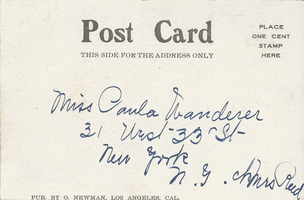 Post Card
THIS SIDE FOR THE ADDRESS ONLY
PLACE
ONE CENT
STAMP
HERE
Miss Paula Wanderer
31 West 33 St
New York
N. Y.
PUB. BY O. NEWMAN, LOS ANGELES, CAL.